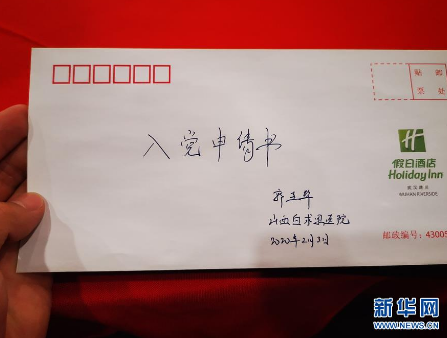 贴 邮
票 处
入党申请书
假日酒店
Holiday Inn
WUHAN RIVERSIDE
山西白求恩医院
2020年2月3日
邮政编号：43005
新华网
WWW.NEWS.CN